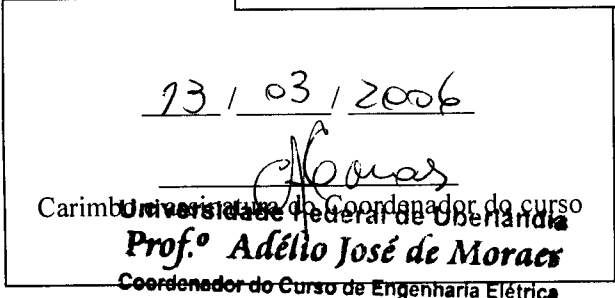 13 / 03 / 2006
AMoraes
Carimbo e assinatura do Coordenador do curso
Universidade Federal de Uberlândia
Prof.º Adélio José de Moraes
Coordenador do Curso de Engenharia Elétrica